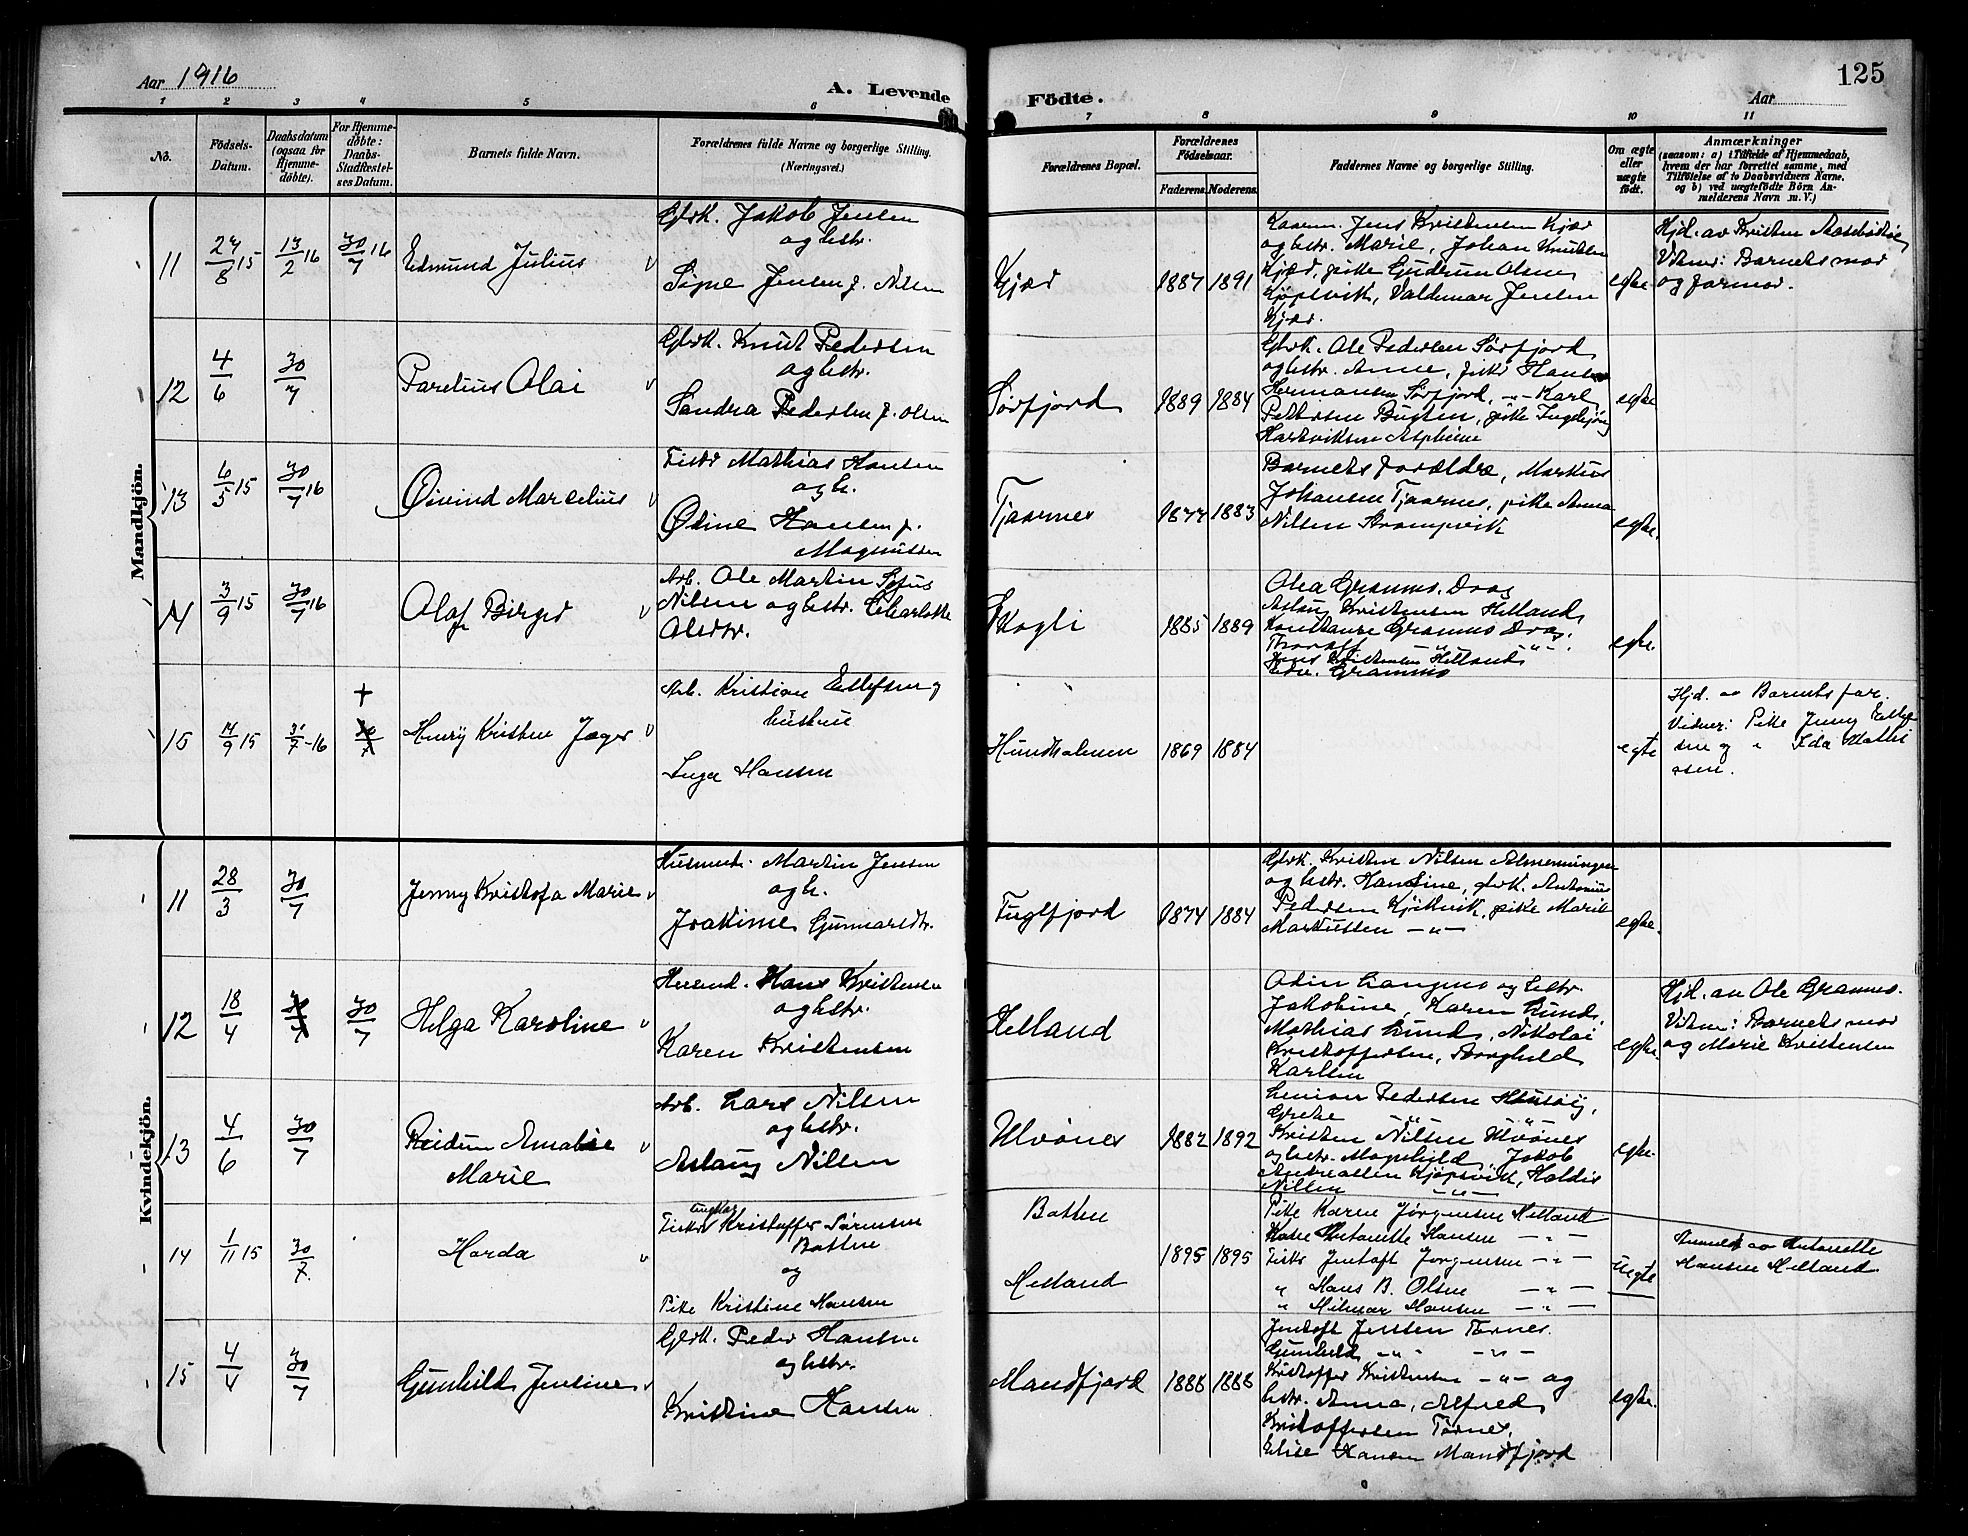 Aar 1916
A. Levende
Födte.
Aar
125
1 2 3 4 5 6 7 8 9 10 11
No.
Födsels-Datum.
Daabsdatum (ogsaa for Hjemme-döbte).
For Hjemme-döbte: Daabs-Stadfæstel-ses Datum.
Barnets fulde Navn.
Forældrenes fulde Navne og borgerlige Stilling. (Næringsvei.)
Forældrenes Bopæl.
Forældrenes Födselsaar.
Faderens. Moderens.
Faddernes Navne og borgerlige Stilling.
Om ægte eller uægte födt.
Anmærkninger
(saasom: a) i Tilfælde af Hjemmedaab,
hvem der har forrettet samme, med
Tilföielse af to Daabsvidners Navne,
og b) ved uægtefödte Börn An-
melderens Navn m. V.)
Mandkjön.
11
27/8 15
13/2 16
30/7 16
Edmund Julius
Gbrk. Jakob Jensen
og hstr.
Signe Jensen f. Nilsen
Kjær
1887 1891
Kaarm. Jens Kristensen Kjær
og hstr. Marie, Johan Knutsen
Kjær, pike Gudrun Olsen
Kjøpsvik, Valdemar Jensen
Kjær.
egte
Hjd. av Kristen
Vidner: Barnets mor
og farmor.
12
4/6
30/7
Parelius Olai
Gbrk. Knut Pedersen
og hstr.
Sandra Pedersen f. Olsen
Sørfjord
1889 1884
Gbrk. Ole Pedersen Sørfjord
og hstr. Anne, fisker Hans
Hermansen Sørfjord, -"- Karl
Pettersen Bugten, pike Ingebjørg
Hartviksen
egte
13
6/5 15
30/7 16
Øivind Marselius
Fisker Mathias Hansen
og h.
Odine Hansen f.
Magnussen
Tjaarnes
1877 1883
Barnets forældre, Markus
Johansen Tjaarnes, pike Anna
Nilsen
egte.
14
3/9 15
30/7 16
Olaf Birger
Arb. Ole Martin Sefus
Nilsen og hstr. Charlotte
Olsdtr.
Skogli
1885 1889
Olea Gramno. Drag
Aslaug Kristensen Helland,
Konstanse Gramno Drag.
Thoralf -"- -"-.
Jens Kristensen Helland
Edv. Gramno
egte.
15
14/9 15
30/7-16
+
30/7
Henry Kristen Jæger
Arb. Kristian Ellefsen og
hustrue
Inga Hansen
Hundholmen
1869 1884
egte
Hjd. av Barnets far.
Vidner: Pike Jenny Ellef
sen og " Ida Mathi
asen.
Kvindekjön.
11
28/3
30/7
Jenny Kristofa Marie
Husmd. Martin Jensen
og h.
Joakime Gunnarsdtr.
Fuglfjord
1874 1884
Gbrk. Kristen Nilsen Almenningen
og hstr. Hansine, gbrk. Antonius
Pedersen Kjøttvik, pike Marie
Markussen -"-
egte.
12
18/4
30/7
30/7
Helga Karoline
Husmd. Hans Kristensen
og hstr.
Karen Kristensen
Helland
Odin Langmo og hstr.
Jakobine, Karen Lund,
Mathias Lund, Nikolai
Kristoffersen, Borghild
Karlsen
egte.
Hjd. av Ole Gramno.
Vidner: Barnets mor
og Marie Kristensen
13
4/6
30/7
Reidun Amalie
Marie
Arb. Lars Nilsen
og hstr.
Aslaug Nilsen
Ulvönes
1882 1892
Pedersen
Grete -"- -"-
Kristen Nilsen Ulvönes
og hstr. Magnhild, Jakob
Andreassen Kjöpsvik, Haldis
Nilsen -"-
egte.
14
1/11 15
30/7.
Harda
ungkar
Fisker Kristoffer Sörensen
Botten
og
Pike Kristine Hansen
Botten
Helland
1895 1895
Pike Karen Jørgensen Helland
Kone Antonette Hansen -"-
Fisker Jentoft Jørgensen -"-
" Hans B. Olsen -"-
" Hilmar Hansen -"-
uegte
Anmeldt av Antonette
Hansen Helland.
15
4/4
30/7
Gunhild Jensine
Gbrk. Peder Hansen
og hstr.
Kristine Hansen
Mandfjord
1888 1888
Jentoft Jensen Tørnes.
Gunhild -"- -"-
Kristoffer Kristensen -"- og
hstr. Anna, Alfred
Kristoffersen Tørnes,
Elise Hansen Mandfjord
egte.